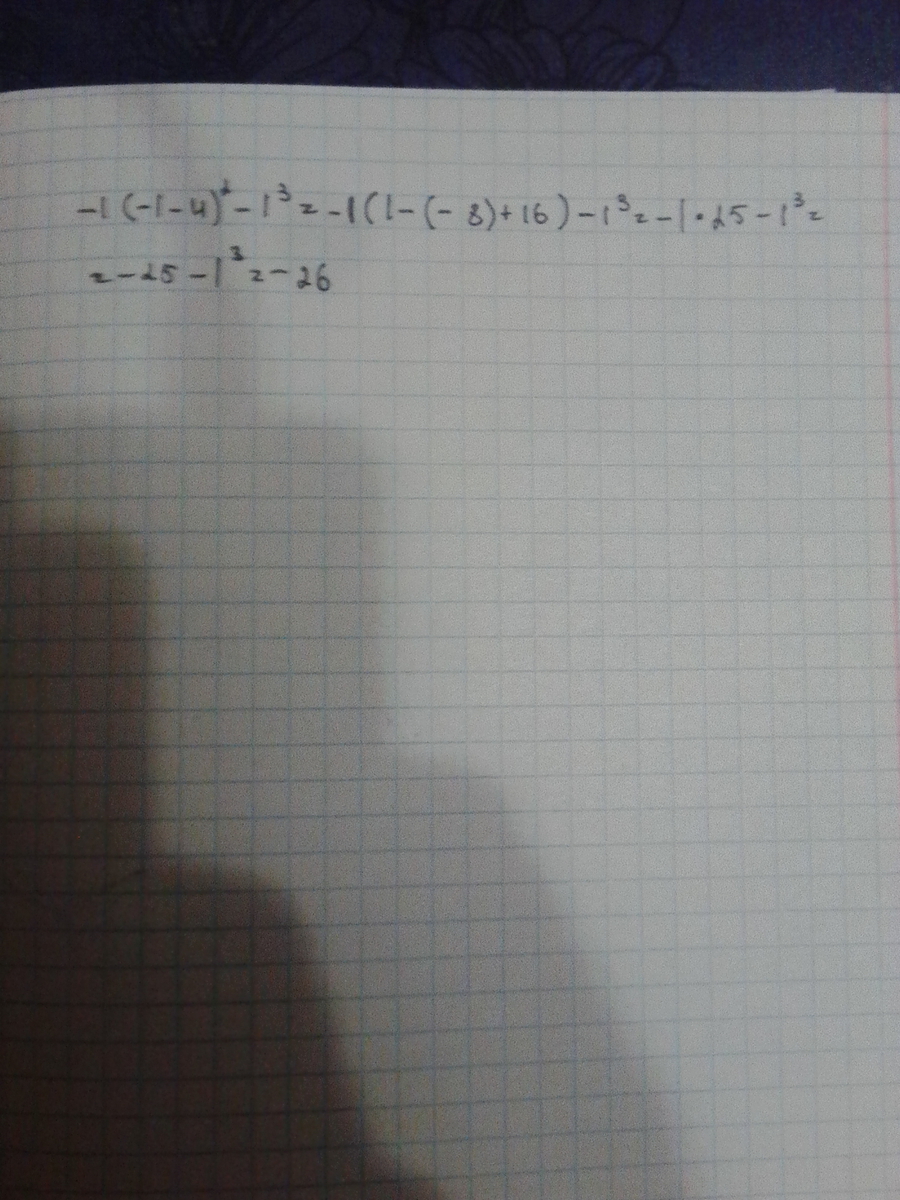 -1(-1-4)²-1³=-1(1-(-8)+16)-1³=-1·25-1³=
=-25-1³=-26